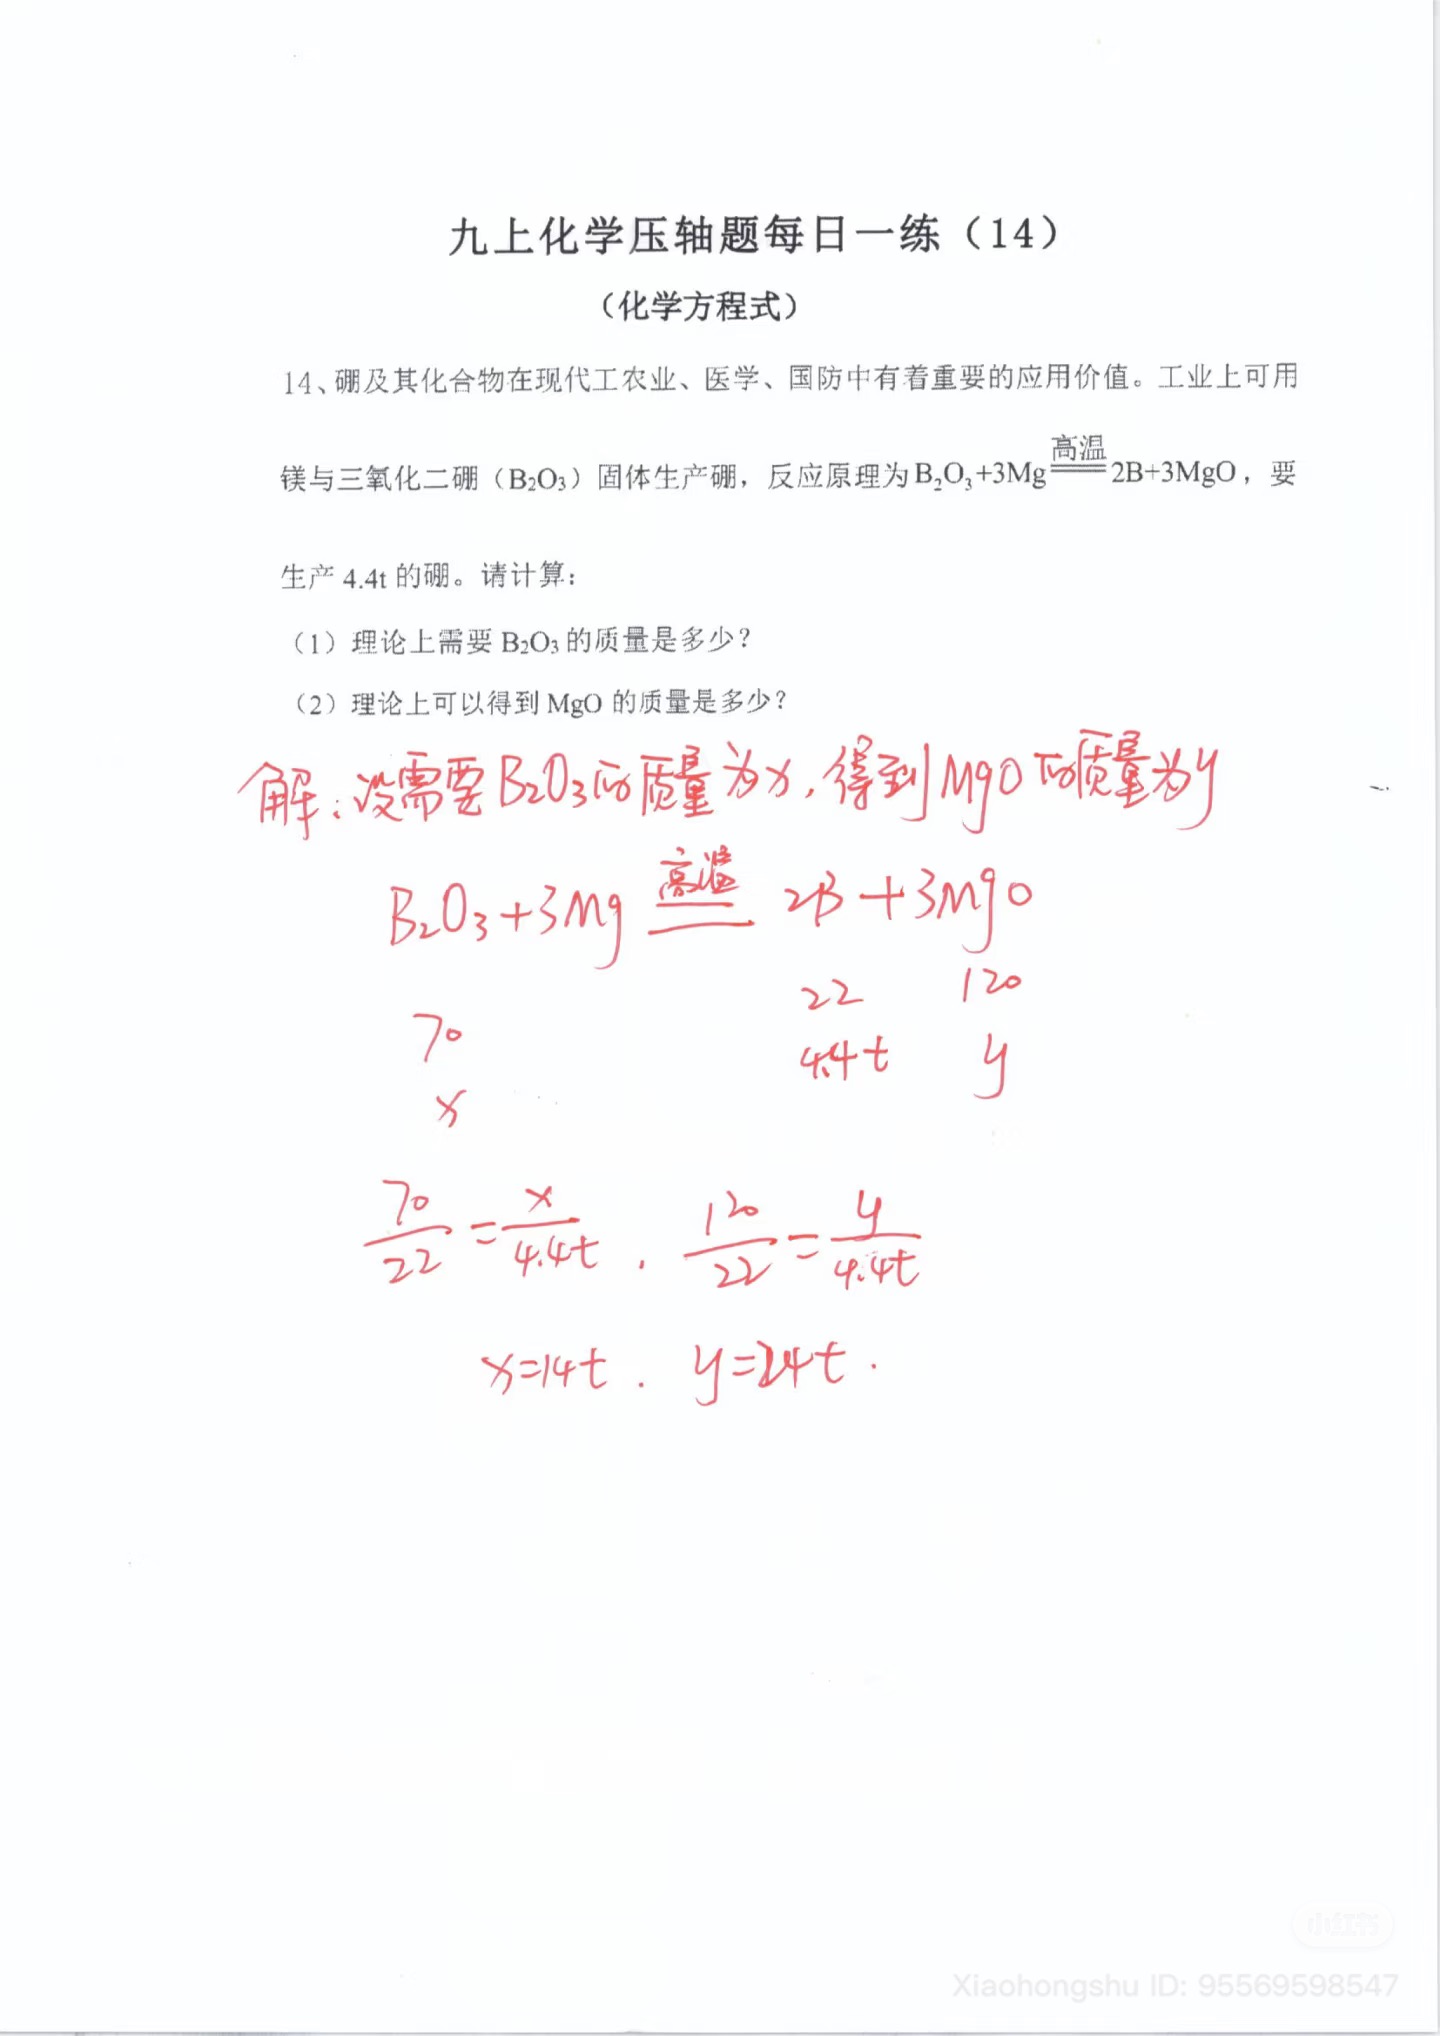 九上化学压轴题每日一练（14）
（化学方程式）
14、硼及其化合物在现代工农业、医学、国防中有着重要的应用价值。工业上可用
高温
镁与三氧化二硼（B₂O₃）固体生产硼，反应原理为B₂O₃+3Mg══2B+3MgO，要
生产 4.4t 的硼。请计算：
（1）理论上需要 B₂O₃ 的质量是多少？
（2）理论上可以得到 MgO 的质量是多少？
解：设需要B₂O₃的质量为x，得到MgO的质量为y
高温
B₂O₃+3Mg══2B+3MgO
70 22 120
x 4.4t y
70/22=x/4.4t . 120/22=y/4.4t
x=14t . y=24t .
小红书
Xiaohongshu ID: 95569598547